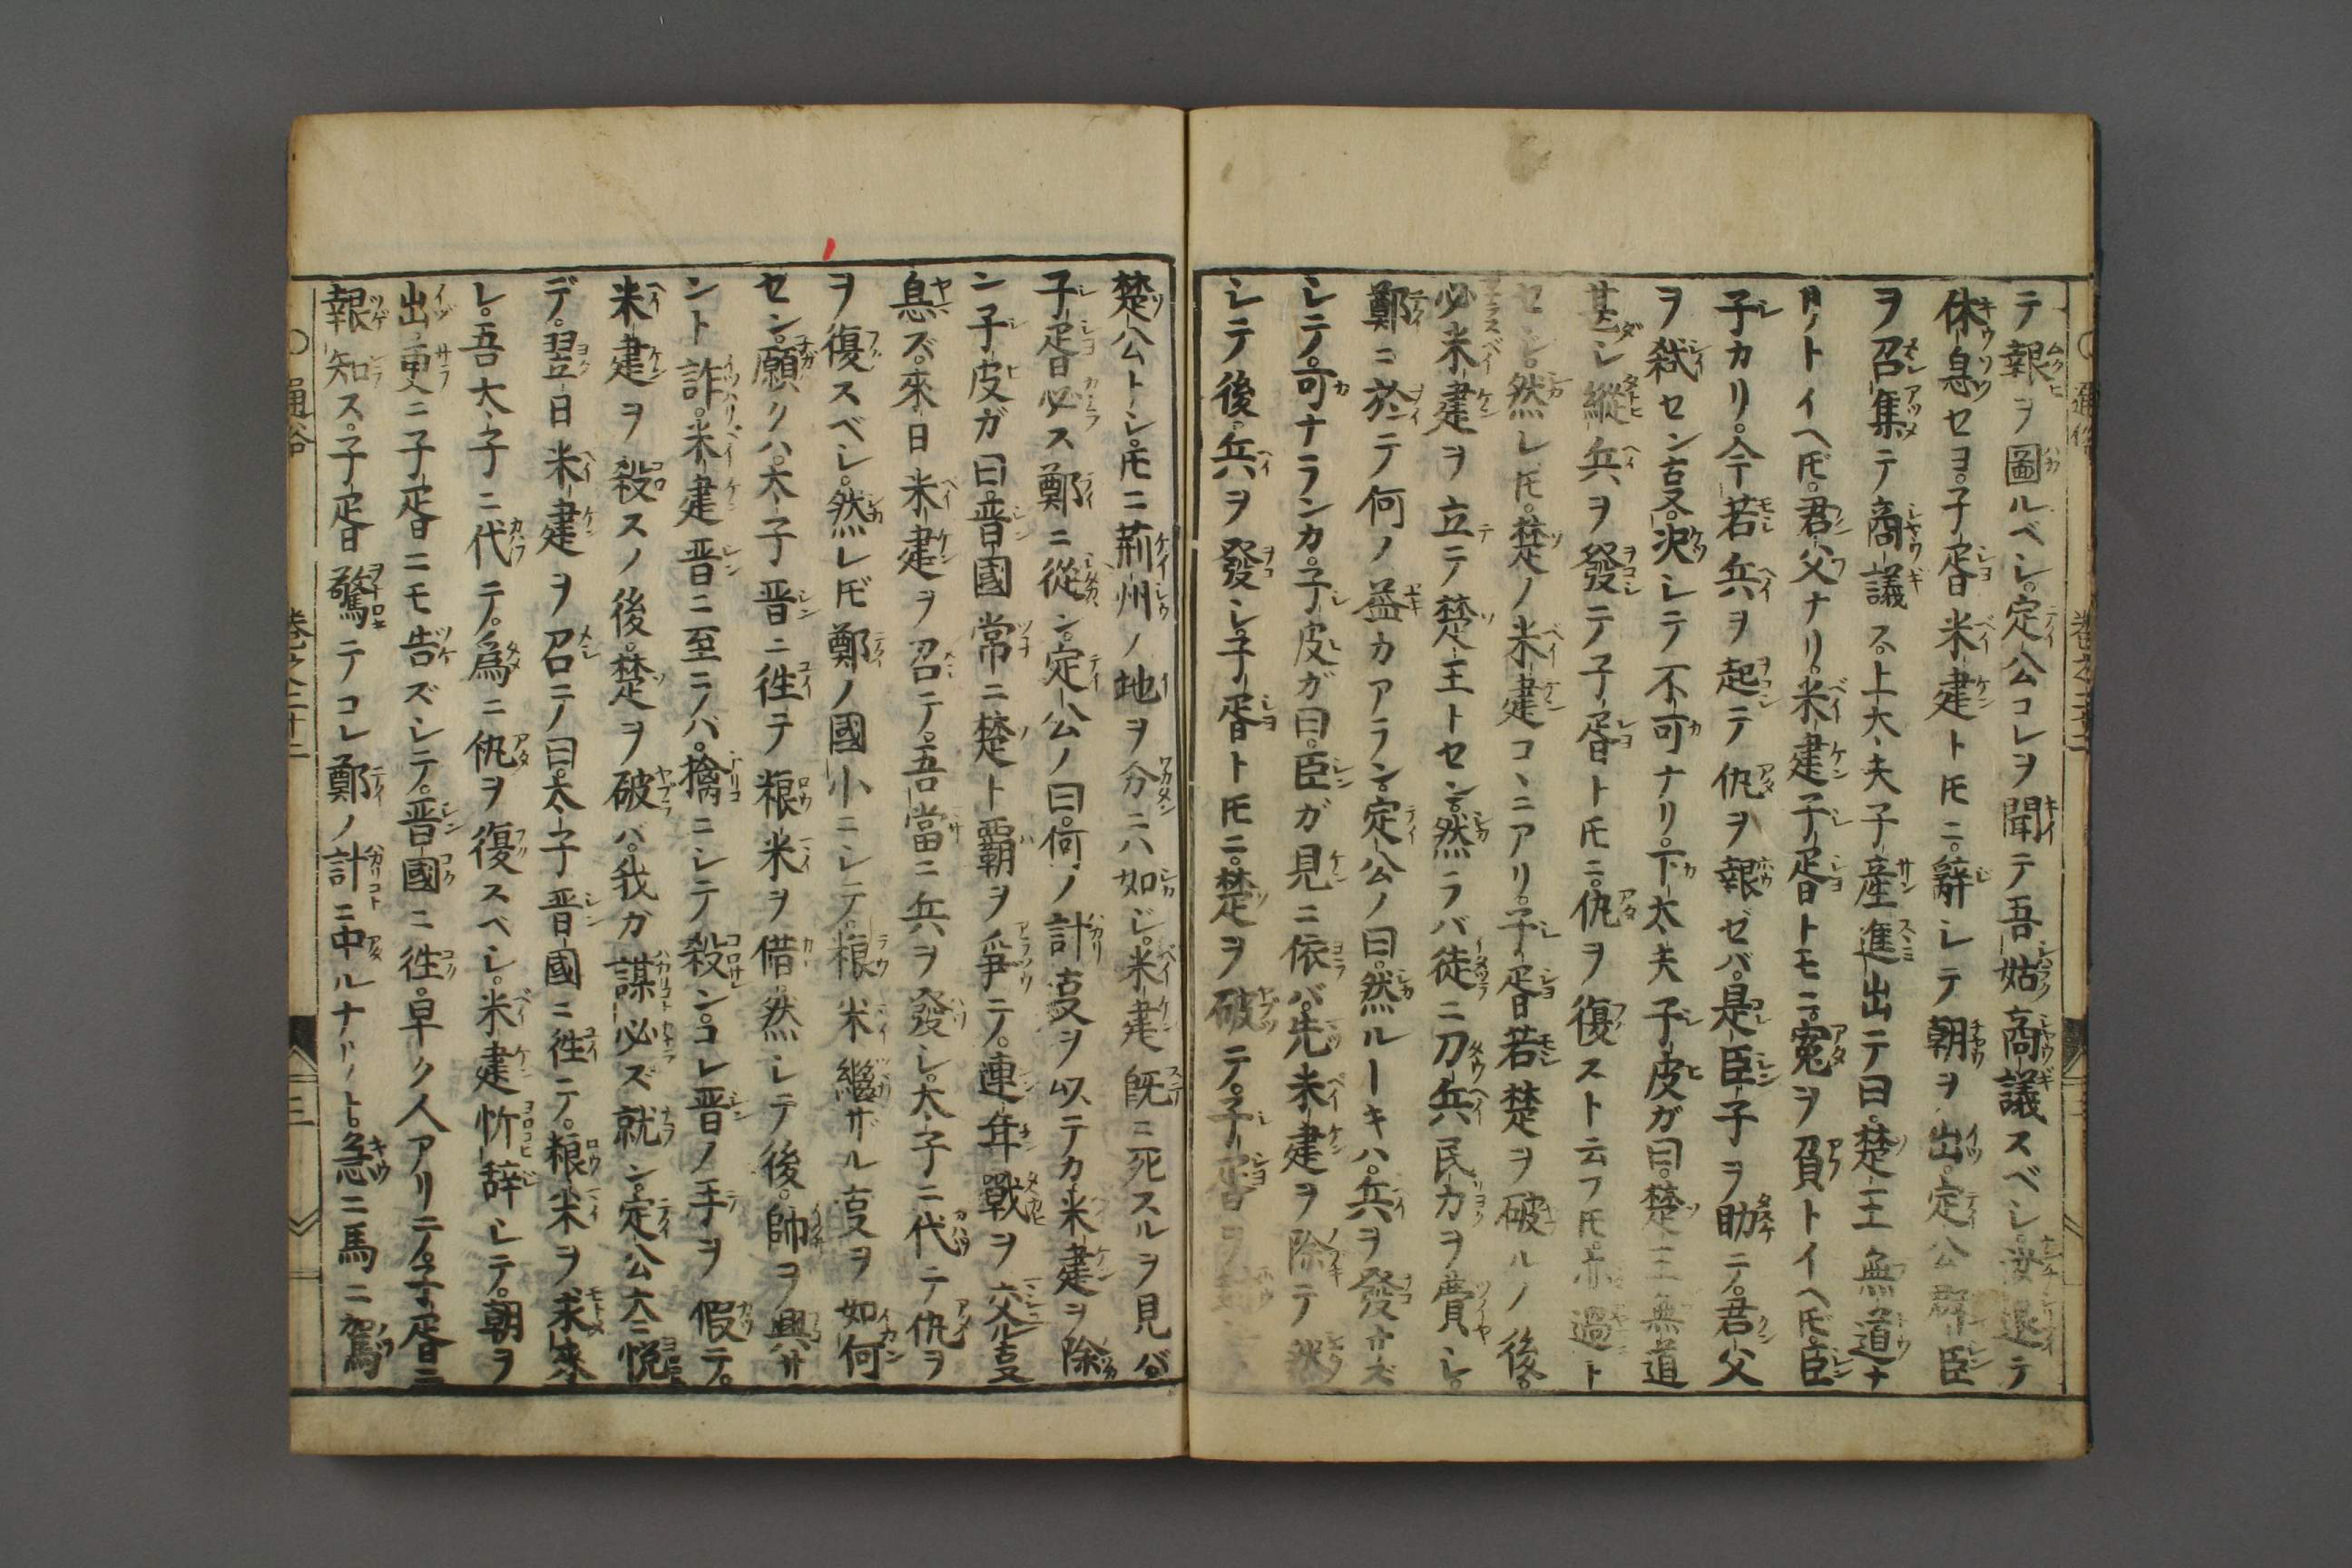 テ報ヲ圖ルベシ。定公コレヲ聞テ吾姑商議スベシ。退テ
休息セヨ。子胥米建トモニ。辭シテ朝ヲ出。定公群臣
ヲ召集テ商議ス。上大夫子産進出テ曰。楚王無道ナ
リトイヘ𪜈。君父ナリ。米建子胥トモニ。寃ヲ負トイヘ𪜈。臣
子カリ。今若兵ヲ起テ仇ヲ報ゼバ。是臣子ヲ助テ。君父
ヲ弑センヿ。决シテ不可ナリ。下大夫子皮ガ曰。楚王無道
甚シ縱兵ヲ發テ子胥トモニ。仇ヲ復スト云フ𪜈。亦過ト
セジ。然レ𪜈。楚ノ米建コヽニアリ。子胥若楚ヲ破ルノ後。
必米建ヲ立テ楚王トセン。然ラバ徒ニ刀兵民力ヲ費シ。
鄭ニ於テ何ノ益カアラン。定公ノ曰。然ルトキハ。兵ヲ發サズ
シテ。可ナランカ。子皮ガ曰。臣ガ見ニ依バ。先米建ヲ除テ
シテ後。兵ヲ發シ子胥トモニ。楚ヲ破テ。子胥ヲ
楚公トシ。𪜈ニ荊州ノ地ヲ分ニハ如ジ。米建既ニ死スルヲ見バ。
子胥必ス鄭ニ從ン。定公ノ曰。何ノ計叓ヲ以テカ米建ヲ除
ン子皮ガ曰。晋國常ニ楚ト覇ヲ爭テ。連年戰ヲ交ル叓
息ズ。來日米建ヲ召テ。吾當ニ兵ヲ發シ。大子ニ代テ仇ヲ
ヲ復スベシ。然レ𪜈鄭ノ國小ニシテ。粮米繼ザル叓ヲ如何
セン。願クハ。太子晋ニ徃テ粮米ヲ借。然シテ後。帥ヲ興サ
ント詐。米建晋ニ至ニノバ。擒ニシテ殺ン。コレ晋ノ手ヲ假テ。
米建ヲ殺スノ後。楚ヲ破バ。我ガ謀必ズ就ン。定公大ニ悦
デ。翌日米建ヲ召テノ曰。太子晋國ニ徃テ。粮米ヲ求來
レ。吾大子ニ代テ。爲ニ仇ヲ復スベシ。米建忻辞シテ。朝ヲ
出。更ニ子胥ニモ告ズシテ。晋國ニ徃。早ク人アリテ。子胥ニ
報知ス。子胥驚テコレ鄭ノ計ニ中ルナリト。急ニ馬ニ駕